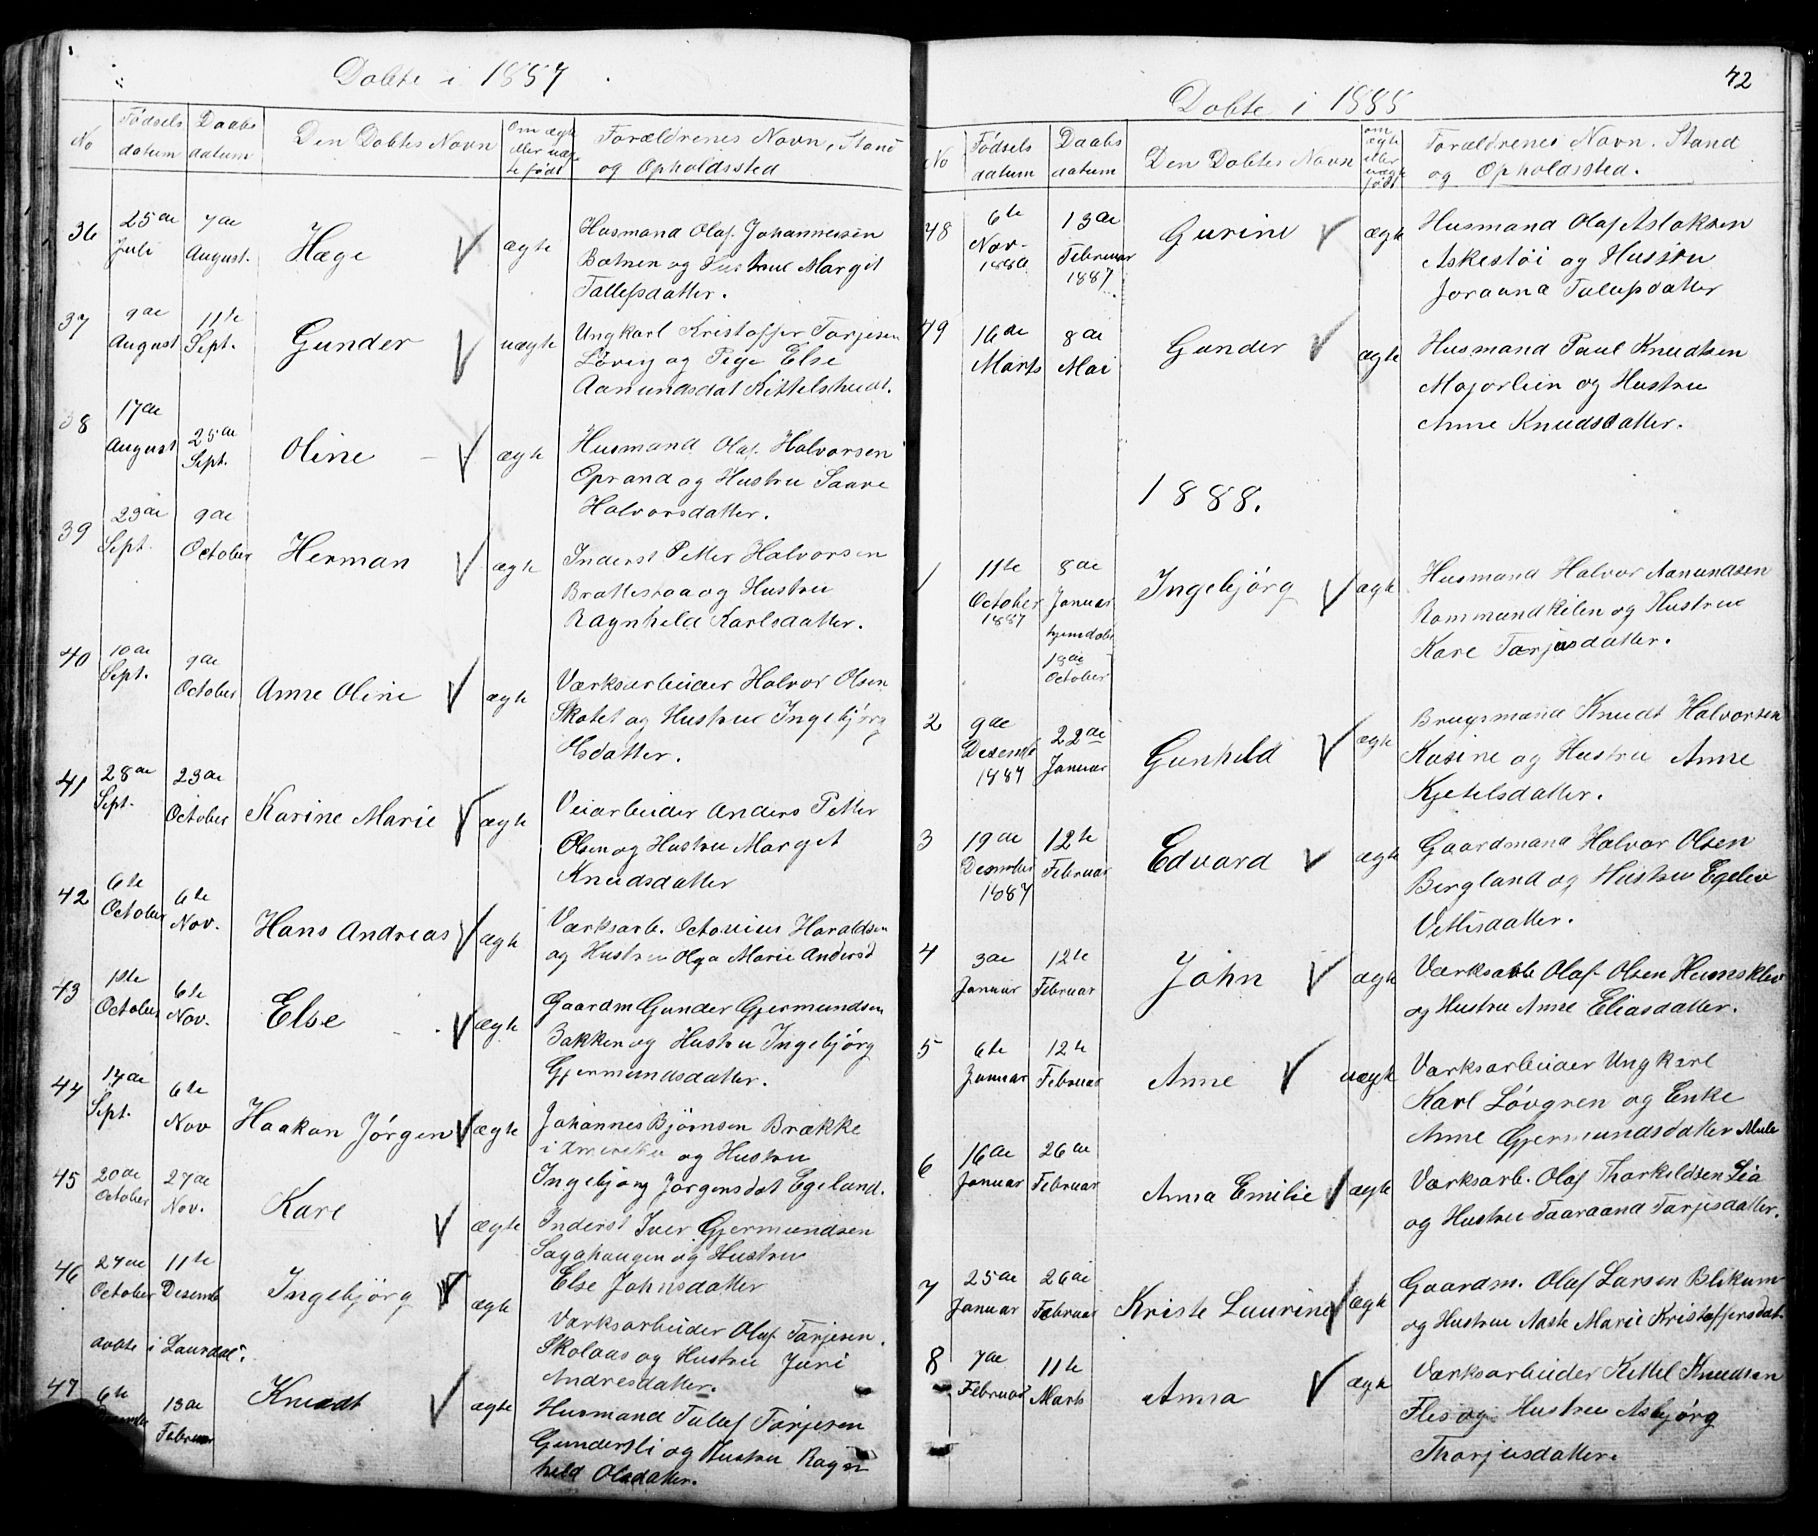 Døbte i 1887
No
Fødsels datum
Daabs datum
Den Døbtes Navn
Om ægte eller uægte født
Forældrenes Navn, Stand og Opholdssted
36
25de Juli
7de August.
Hæge
ægte
Husmand Olaf Johannesen
Botnen og Hustrue Margit
Tallefsdatter.
37
9de August
11te Sept.
Gunder
uægte
Ungkarl Kristoffer Torjesen
Løvig og Pige Else
Aanundsdat Kittelshudt.
38
17de August
25de Sept.
Oline
ægte
Husmand Olaf Halvorsen
Oprand og Hustru Saave
Halvorsdatter.
39
23de Sept.
9de October
Herman
ægte
Inderst Petter Halvorsen
Brattestaa og Hustru
Ragnhild Karlsdatter.
40
10de Sept.
9de October
Anne Oline
ægte
Værksarbeider Halvor Olsen
Skotet og Hustrue Ingebjørg
Elsdatter.
41
28de Sept.
23de October
Karine Marie
ægte
Veiarbeider Anders Petter
Olsen og Hustru Marget
Knudsdatter
42
6te October
6te Nov.
Hans Andreas
ægte
Værksarb. Octovius Haraldsen
og Hustru Olga Marie Andersd
43
1ste October
6te Nov.
Else
ægte
Gaardm Gunder Gjermundsen
Bakken og Hustru Ingebjørg
Gjermundsdatter.
44
14de Sept.
6te Nov
Haakon Jørgen
ægte
Johannes Bjørnsen Brække
i Amerika og Hustru
Ingebjørg Jørgensdat Egeland.
45
20de October
27de Nov.
Kare
ægte
Inderst Iver Gjermundsen
Sagahaugen og Hustru
Else Johnsdatter
46
27de October
11te Desemb
Ingebjørg
ægte
døbte i Laurdal.
Værksarbeider Olaf Tarjesen
Skolaas og Hustru Juri
Andresdatter.
47
6te
13de Februar
Knudt
ægte
Husmand Tolaf Torjesen
Gundersli og Hustru Ragn
hild Olsdatter.
42
Døbte i 1888
No
Fødsels datum
Daabs datum
Den Døbtes Navn
om ægte eller uægte født
Forældrenes Navn. Stand
og Opholdssted.
48
6te Nov. 1886
13de Februar 1887
Gurine
ægte
Husmand Olaf Aslaksen
Askestøi og Hustru
Joraand Talefsdatter
49
16de Marts
8de Mai
Gunder
ægte
Husmand Paul Knudsen
Majorlien og Hustru
Anne Knudsdatter.
1888.
1
11te October 1887
8de Januar
hjemdøbt
18de October
Ingebjørg
ægte
Husmand Halvor Aanundsen
Rommundkilen og Hustrue
Kare Tarjusdatter.
2
9de Desemb 1887
22de Januar
Gunhild
ægte
Brugsmand Knudt Halvorsen
Kasine og Hustru Anne
Kjetelsdatter.
3
19de Desember 1887
12te Februar
Edvard
ægte
Gaardmand Halvor Olsen
Bergland og Hustru Egelev
Vetlisdatter.
4
3de Januar
12te Februar
John
ægte
Værksarb Olaf Olsen Heimsklev
og Hustru Anne Eliasdatter.
5
6te Januar
12te Februar
Anne
uægte
Værksarbeider Ungkarl
Karl Løvgren og Enke
Anne Gjermundsdatter Mule
6
16de Januar
26de Februar
Anna Emilie
ægte
Værksarb. Olaf Thorkildsen Lia
og Hustru Taaraand Tarjesdatter.
7
25de Januar
26de Februar
Kriste Laurine
ægte
Gaardm. Olaf Larsen Blikum
og Hustru Aaste Marie Kristoffersdat.
8
7de Februar
11te Marts
Anna
ægte
Værksarbeider Kittel Knudsen
Flis og Hustru Asbjørg
Thorjusdatter.